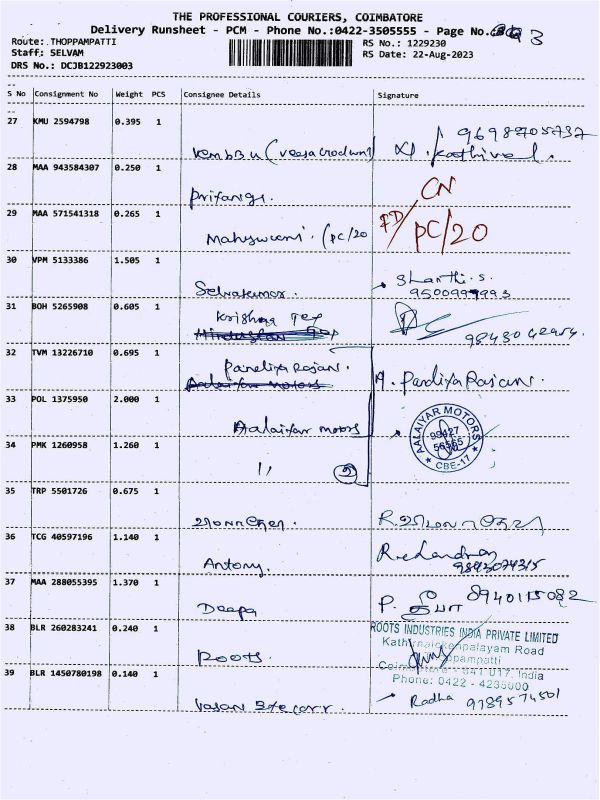 THE PROFESSIONAL COURIERS, COIMBATORE
Delivery Runsheet - PCM - Phone No.:0422-3505555 - Page No. 3
Route: THOPPAMPATTI
RS No.: 1229230
Staff: SELVAM
RS Date: 22-Aug-2023
DRS No.: DCJB122923003
S No Consignment No Weight PCS Consignee Details Signature
27 KMU 2594798 0.395 1
9698705737
28 MAA 943584307 0.250 1
CN
29 MAA 571541318 0.265 1 (PC/20
FD/PC/20
30 VPM 5133386 1.505 1 Selvakumar.
Shanthi.S.
31 BOH 5265908 0.605 1 Krishna Tex
32 TVM 13226710 0.695 1 Pandiyarajan. A. PandiyaRajan.
33 POL 1375950 2.000 1 Aalaiyar motors
AALAIYAR MOTORS
99427
56565
CBE-17
34 PMK 1260958 1.260 1 11 2
35 TRP 5501726 0.675 1
36 TCG 40597196 1.140 1 Antony.
9893074315
37 MAA 288055395 1.370 1 Deepa P. தீபா 8940115082
38 BLR 260283241 0.240 1 Roots.
ROOTS INDUSTRIES INDIA PRIVATE LIMITED
Road
641 017. India
Phone: 0422 - 4235000
39 BLR 1450780198 0.140 1 Vasan
Radha 9789574501